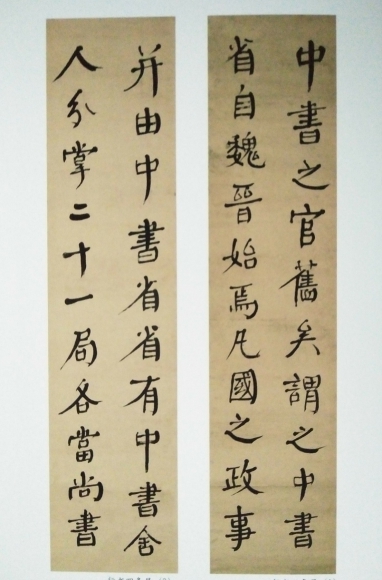 中書之官舊矣謂之中書
省自魏晉始焉凡國之政事
并由中書省省有中書舍
人分掌二十一局各當尚書